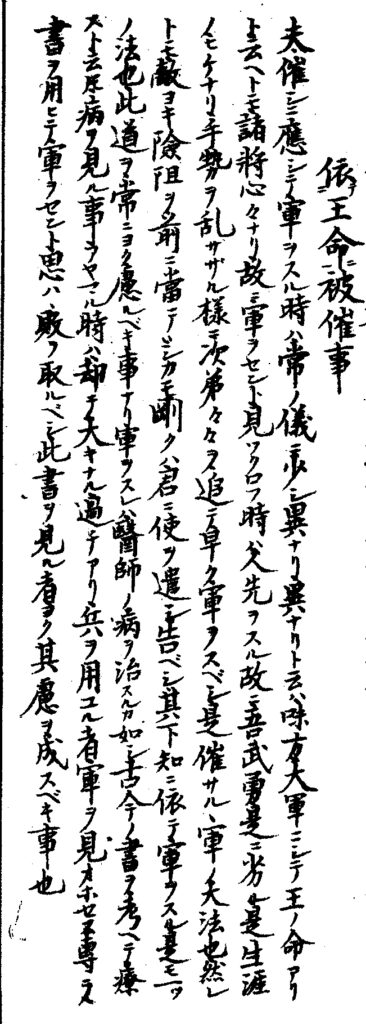 依テ王命ニ被催事
夫催シニ應シテ軍ヲスル時ハ常ノ儀ニ少シ異ナリ異ナリト云ハ味方大軍ニシテ王ノ命アリ
ト云ヘトモ諸将心々ナリ故ニ軍ヲセント見ツクロフ時ハ先ヲスル故ニ吾武勇是ニ劣ル是生涯
ノ モケナリ手勢ヲ乱サザル様ニ次第々々ヲ追テ早ク軍ヲスベシ是催サルヽ軍ノ大法也然レ
トモ敵ヨキ險阻ヲ前ニ當テ シカモ剛クハ君ニ使ヲ遣シ告ベシ其下知ニ依テ軍ヲスル是モ一ツ
ノ法也此道ヲ常ニヨク慮ルベキ事ナリ軍ヲスルハ醫師ノ病ヲ治スルカ如シ古今ノ書ヲ考ヘテ療
ストと云トモ病ヲ見ル事ヲヤマル時ハ却テ大キナル過チアリ兵ヲ用ユル者軍ヲ見オホセス専ラ
書ヲ用ヒテ軍ヲセント思ハヽ敗ヲ取ルベシ此書ヲ見ル者ヨク其慮ヲ成スベキ事也